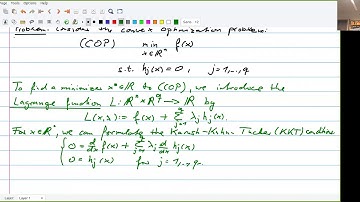 Problem: Consider the convex optimization problem:
(COP) min f(x)
x∈ℝⁿ
s.t. hj(x) = 0, j=1,..,q
To find a minimizer x*∈ℝ to (COP), we introduce the
Lagrange function L: ℝⁿ×ℝ^q → ℝ by
L(x,λ) := f(x) + Σ_{j=1}^q λj hj(x).
For x∈ℝⁿ, we can formulate the Karush-Kuhn-Tucker (KKT) conditions
0 = d/dx f(x) + Σ_{j=1}^q λj d/dx hj(x)
0 = hj(x) for j=1,..,q.